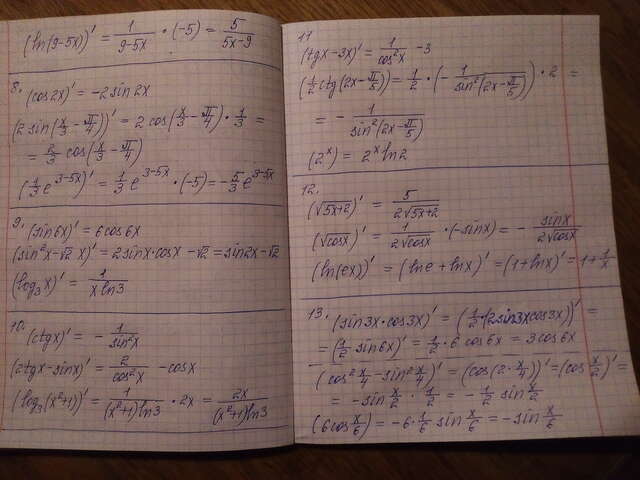 (ln(9-5x))' = 1/(9-5x) · (-5) = 5/(5x-9)
8. (cos2x)' = -2sin2x
(2sin(x/3 - π/4))' = 2cos(x/3 - π/4) · 1/3 =
= 2/3 cos(x/3 - π/4)
(1/3 e^(3-5x))' = 1/3 e^(3-5x) · (-5) = -5/3 e^(3-5x)
9. (sin6x)' = 6cos6x
(sin²x - √2 x)' = 2sinx·cosx - √2 = sin2x - √2
(log₃x)' = 1/(x ln3)
10. (ctgx)' = -1/sin²x
(2tgx - sinx)' = 2/cos²x - cosx
(log₃(x²+1))' = 1/((x²+1)ln3) · 2x = 2x/((x²+1)ln3)
11.
(tgx - 3x)' = 1/cos²x - 3
(1/2 ctg(2x - π/5))' = 1/2 · (-1/sin²(2x - π/5)) · 2 =
= -1/sin²(2x - π/5)
(2ˣ)' = 2ˣ ln2
12.
(√(5x+2))' = 5/(2√(5x+2))
(√cosx)' = 1/(2√cosx) · (-sinx) = -sinx/(2√cosx)
(ln(ex))' = (lne + lnx)' = (1 + lnx)' = 1 + 1/x
13. (sin3x·cos3x)' = (1/2 · (2sin3xcos3x))' =
= (1/2 sin6x)' = 1/2 · 6cos6x = 3cos6x
(cos² x/4 - sin² x/4)' = (cos(2· x/4))' = (cos x/2)' =
= -sin x/2 · 1/2 = -1/2 sin x/2
(6cos x/6)' = -6 · 1/6 sin x/6 = -sin x/6